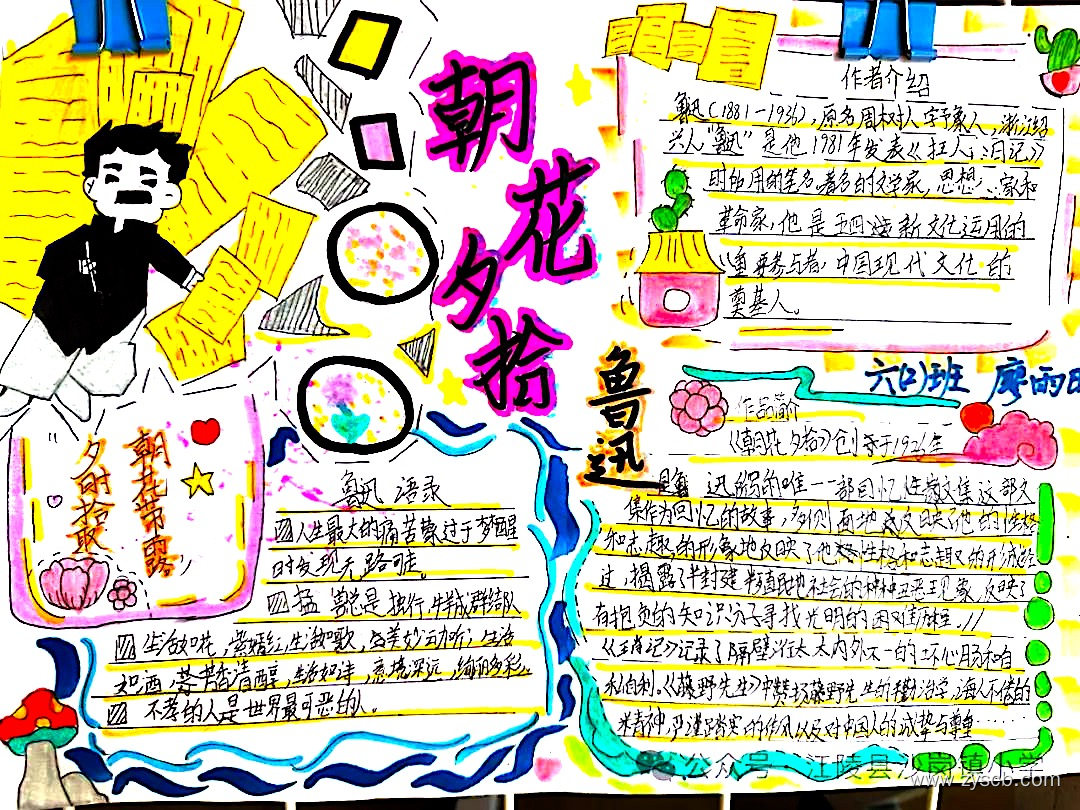 朝花夕拾
鲁迅
作者介绍
鲁迅(1881—1936),原名周树人,字予象人,浙江绍
兴人“鲁迅”是他1981年发表《狂人日记》
时所用的笔名.著名的文学家,思想家和
革命家,他是五四 新文化运用的
重要参与者,中国现代文化的
奠基人。
六(2)班 廖雨
朝花带露
夕时拾取
鲁迅 语录
人生最大的痛苦莫过于梦醒
时发现无路可走。
猛兽总是独行,牛羊成群结队
生活如花,姹紫嫣红,生活如歌,美妙动听;生活
如酒,芳香清醇,生活如诗,意境深远,绚丽多彩。
不孝的人是世界最可恶的人。
作品简介
《朝花夕拾》创作于1926年
是鲁迅 的唯一一部回忆性散文集这部文
集作为回忆的故事,多侧面地 反映了他的性格
和志趣的形象地反映了他 性格和志趣的形成经
过,揭露了半封建半殖民地社会的种种丑恶现象,反映了
有抱负的知识分子寻找光明的困难 .//
记录了隔壁 太太内外不一的坏心肠和自
私自利.《藤野先生》中赞扬藤野先生的 治学,诲人不倦的
精神,严谨踏实的作风以及对中国人的诚挚与尊重……
公众号·江陵县沙岗镇小学
www.zyscb.com